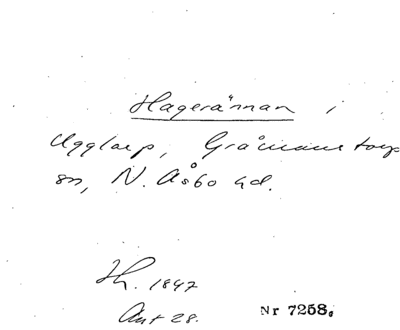 Hagerännan i
Ugglarp, Gråmanstorps
sn, N. Åsbo hd.
Hh. 1847
Ant 28.
Nr 7258.